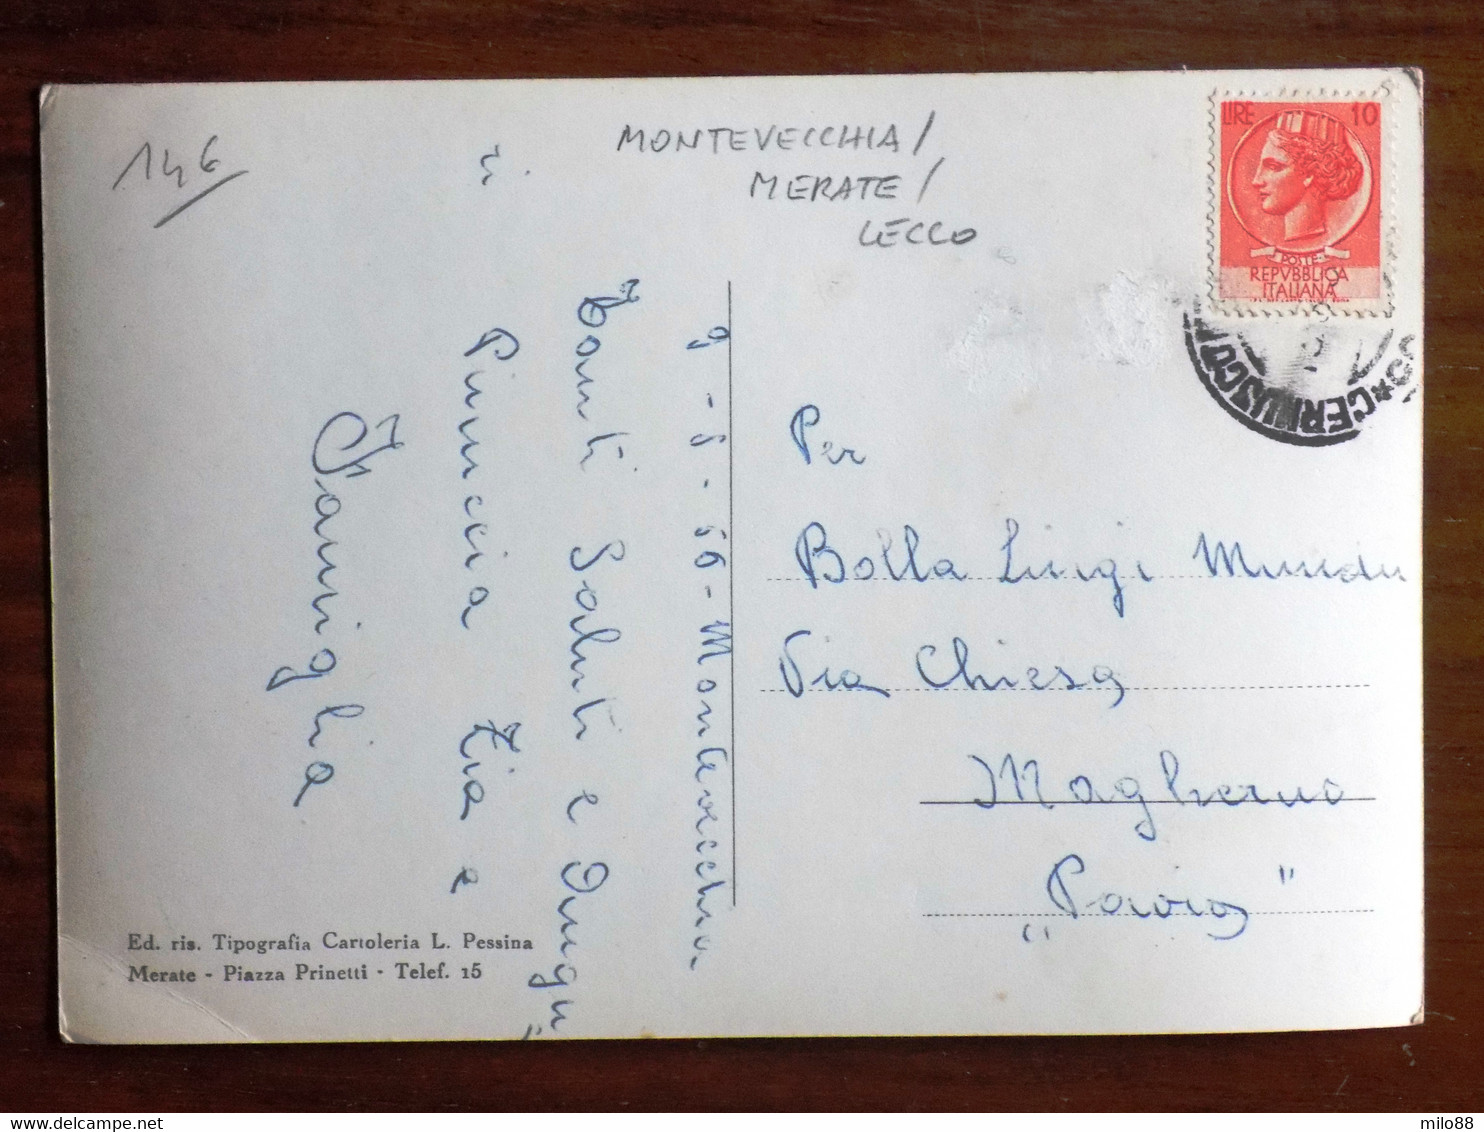 146
MONTEVECCHIA/
MERATE/
LECCO
LIRE 10
POSTE
REPVBBLICA
ITALIANA
CERNUSCO
9-8-56-Montevecchia
Tanti Saluti e Auguri
Pinuccia Zia e
Famiglia
Per
Bolla Luigi
Via Chiesa
Magherno
"Pavia"
Ed. ris. Tipografia Cartoleria L. Pessina
Merate - Piazza Prinetti - Telef. 15
milo88